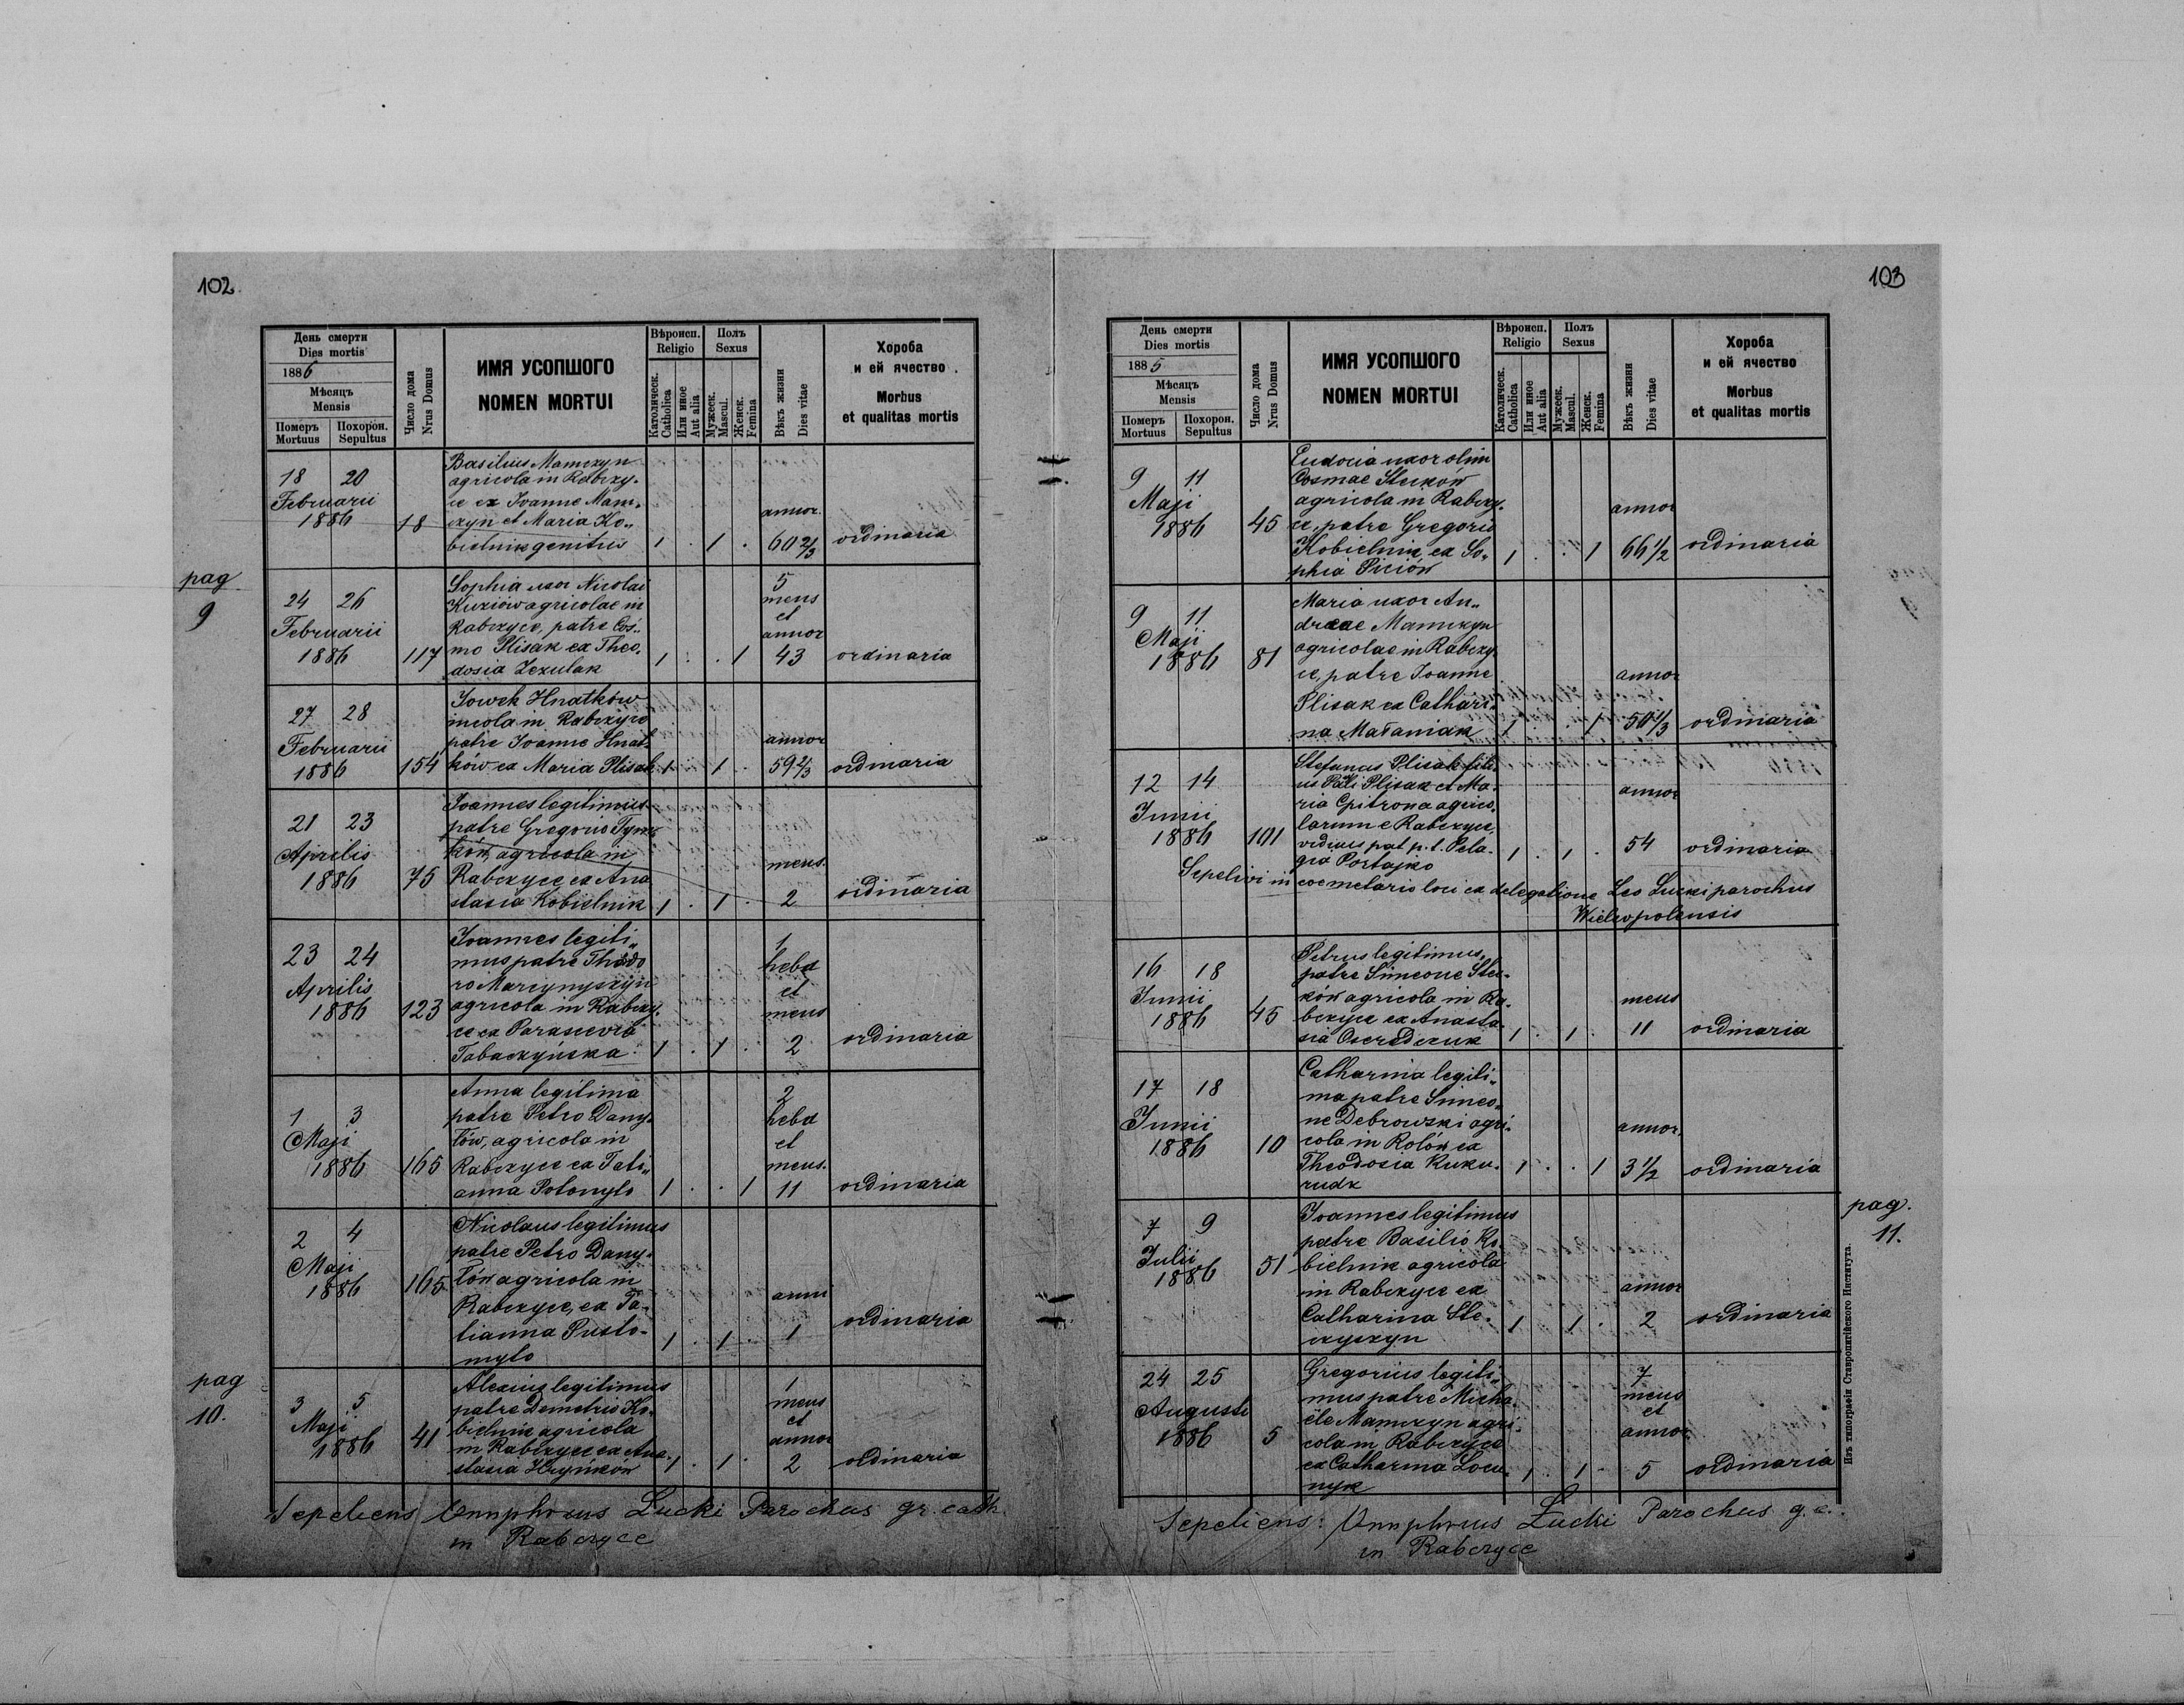 102
День смерти
Dies mortis
1886
Мѣсяцъ
Mensis
Померъ
Mortuus
Похорон.
Sepultus
Число дома
Nrus Domus
ИМЯ УСОПШОГО
NOMEN MORTUI
Вѣроисп.
Religio
Католическ.
Catholica
Или иное
Aut alia
Полъ
Sexus
Мужеск.
Mascul.
Женск.
Femina
Вѣкъ жизни
Dies vitae
Хороба
и ей ячество
Morbus
et qualitas mortis
18 20
Februarii
1886
18
Basilius Mamczyn
agricola in Rabczy-
ce ex Joanne Mam-
czyn et Maria Ko-
bielnik genitus
1 . 1 .
annor.
60 2/3
ordinaria
pag
9
24 26
Februarii
1886
117
Sophia uxor Nicolai
Kuziów agricolae in
Rabczyce, patre Coś-
mo Plisak ex Theo-
dosia Zezulak
1 . . 1
5
mens
et
annor
43
ordinaria
27 28
Februarii
1886
154
Jowek Hnatków
incola in Rabczyce
patre Joanne Hnat-
ków ex Maria Plisak
1 . 1 .
annor
59 2/3
ordinaria
21 23
Aprilis
1886
75
Joannes legitimus
patre Gregorio
ków, agricola in
Rabczyce ex Ana
stasia Kobielnik
1 . 1 .
mens.
2
ordinaria
23 24
Aprilis
1886
123
Joannes legiti-
mus patre Theodo
ro Marcynyszyn
agricola in Rabczy-
ce ex Parascevia
Tabaczyńska
1 . 1 .
1
hebd
et
mens
2
ordinaria
1 3
Maji
1886
165
Anna legitima
patre Petro Dany-
łów, agricola in
Rabczyce ex Tati-
anna
1 . . 1
2
hebd
et
mens.
11
ordinaria
2 4
Maji
1886
165
Nicolaus legitimus
patre Petro Dany-
łów agricola in
Rabczyce, ex Ta-
tianna Pusto-
myto
1 . 1 .
anni
1
ordinaria
pag
10.
3 5
Maji
1886
41
Alexius legitimus
patre Demetrio Ko-
bielnik agricola
in Rabczyce ex Ana-
stasia Hryńków
1 . 1 .
1
mens
et
annor
2
ordinaria
Sepeliens Onuphrius Łucki Parochus gr. cath.
in Rabczyce
103
День смерти
Dies mortis
1885
Мѣсяцъ
Mensis
Померъ
Mortuus
Похорон.
Sepultus
Число дома
Nrus Domus
ИМЯ УСОПШОГО
NOMEN MORTUI
Вѣроисп.
Religio
Католическ.
Catholica
Или иное
Aut alia
Полъ
Sexus
Мужеск.
Mascul.
Женск.
Femina
Вѣкъ жизни
Dies vitae
Хороба
и ей ячество
Morbus
et qualitas mortis
9 11
Maji
1886
45
Eudocia uxor olim
Cosmae Steików
agricola in Rabczy-
ce, patre Gregorio
Kobielnik, ex So-
phia
1 . . 1
annor
66 1/2
ordinaria
9 11
Maji
1886
81
Maria uxor An-
dreae Mamczyn
agricolae in Rabczy-
ce, patre Joanne
Plisak ex Cathari-
na Mataniak
1 . . 1
annor
50 1/3
ordinaria
12 14
Junii
1886
101
Stefanus Plisak fili-
us Plisak et Ma-
ria agrico-
larum e Rabczyce,
viduus p.t. Pela-
gia Portajko
1 . 1 .
annor
54
ordinaria
Sepelivi in coemetario loci ex delegatione Leo Łucki parochus
Wielkopolensis
16 18
Junii
1886
45
Petrus legitimus,
patre Simeone Stei-
ków agricola in Ra-
bczyce ex Anasta-
sia Oseredczuk
1 . 1 .
mens
11
ordinaria
17 18
Junii
1886
10
Catharina legiti-
ma patre Simeo-
ne Debrowski agri-
cola in Rolów ex
Theodosia Kuku-
rudz
1 . . 1
annor.
3 1/2
ordinaria
pag.
11.
7 9
Julii
1886
51
Joannes legitimus
patre Basilio Ko-
bielnik agricola
in Rabczyce ex
Catharina Ste-
czyszyn
1 . 1 .
annor
2
ordinaria
24 25
Augusti
1886
5
Gregorius legiti-
mus patre Micha-
ele Mamczyn agri-
cola in Rabczyce
ex Catharina Locu-
nyk
1 . 1 .
7
mens
et
annor.
5
ordinaria
Изъ типографіи Ставропигійского Института.
Sepeliens: Onuphrius Łucki Parochus g. c.
in Rabczyce